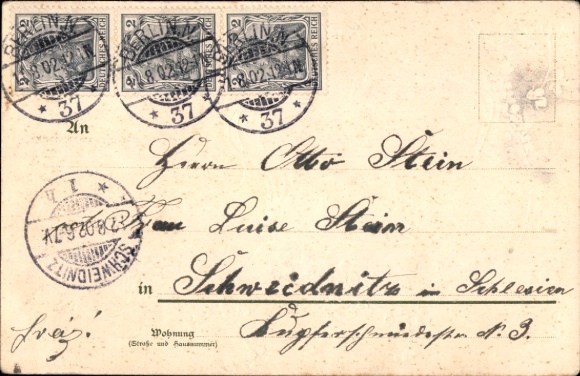 2 2 2 2 2 2
DEUTSCHES REICH DEUTSCHES REICH DEUTSCHES REICH
BERLIN.N. BERLIN.N. BERLIN.N.
8.02.12-1N. 8.02.12-1N. 8.02.12-1N.
* 37 * * 37 * * 37 *
An
Herrn Otto Stein
Frau Luise Stein
SCHWEIDNITZ
in Schweidnitz in Schlesien
frei!
Wohnung
(Straße und Hausnummer)
Kupferschmiedestr. N. 3.